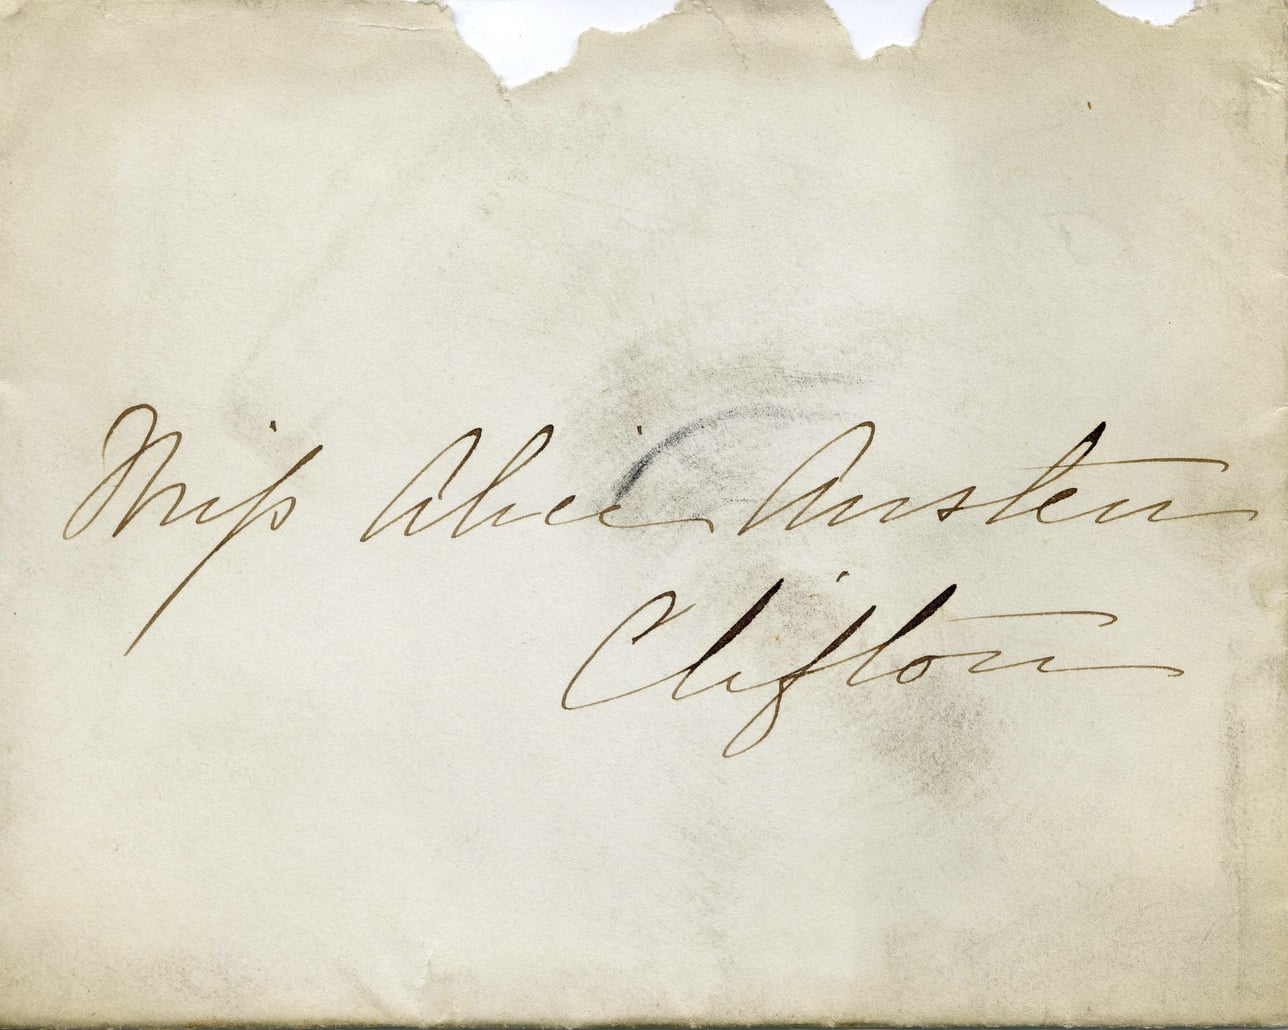 Miss Alice Austen
Clifton